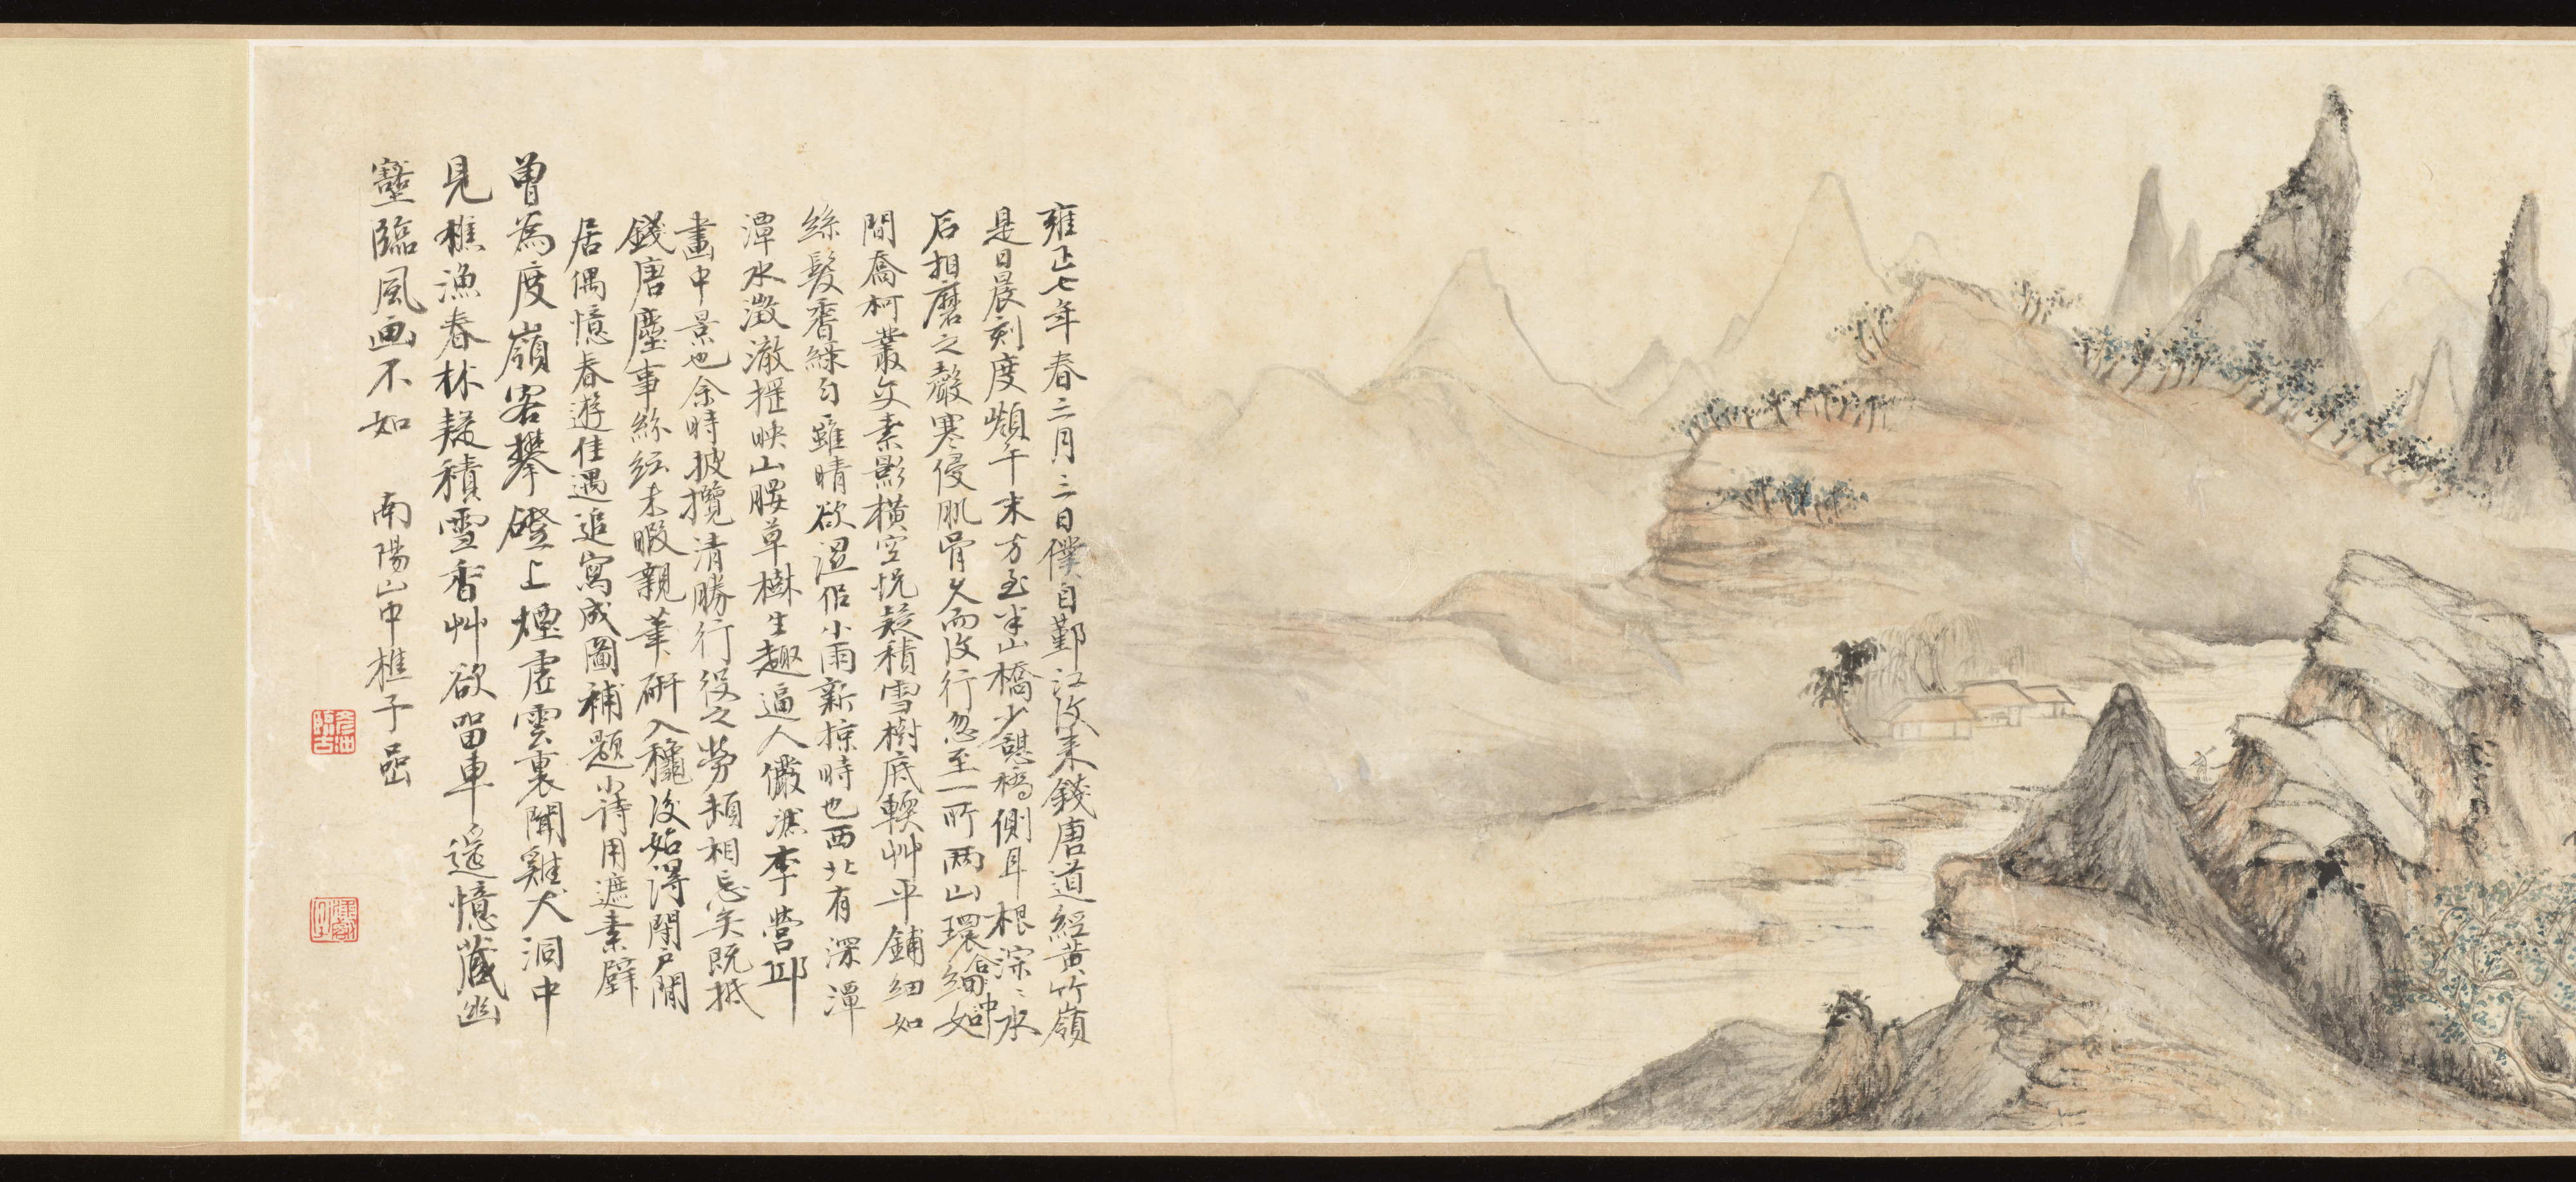 雍正七年春二月三日僕自鄞江汶来錢唐道經黃竹嶺
是日晨刻度嶺午末方至半山橋少憩橋側耳根淙〻水
后相磨之聲寒侵肌骨久而汶行忽至一所兩山環合中
間喬柯叢交素影橫空恍疑積雪樹底輭艸平鋪細如
絲髮香綠勻雖晴欲溼佀小雨新掠時也西北有深潭
潭水澂澈摧映山腰草樹生趣逼人儼然李營邱
畫中景也余時披攬清勝行役之勞頓相忘矣既抵
錢唐塵事絲紜未暇親筆研入穐後始得閉戶閒
居偶憶春遊佳遇追寫成圖補題小詩用遮素壁
曾為度嶺客攀磴上煙虛雲裏聞雞犬洞中
見樵漁春林疑積雪香艸欲留車遙憶藏幽
壑臨風画不如 南陽山中樵子嵒